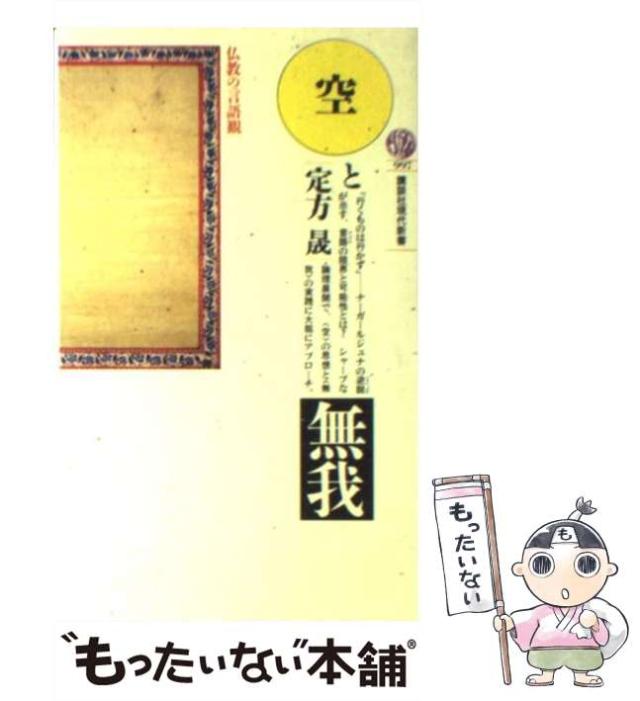 空
と
無我
定方 晟
仏教の言語観
997
講談社現代新書
「行くものは行かず」――ナーガールジュナの逆説
が示す、言語の限界と可能性とは? シャープな
論理展開で、〈空〉の思想と〈無
我〉の実践に大胆にアプローチ。
"もったいない"本舗®
もったいない
も